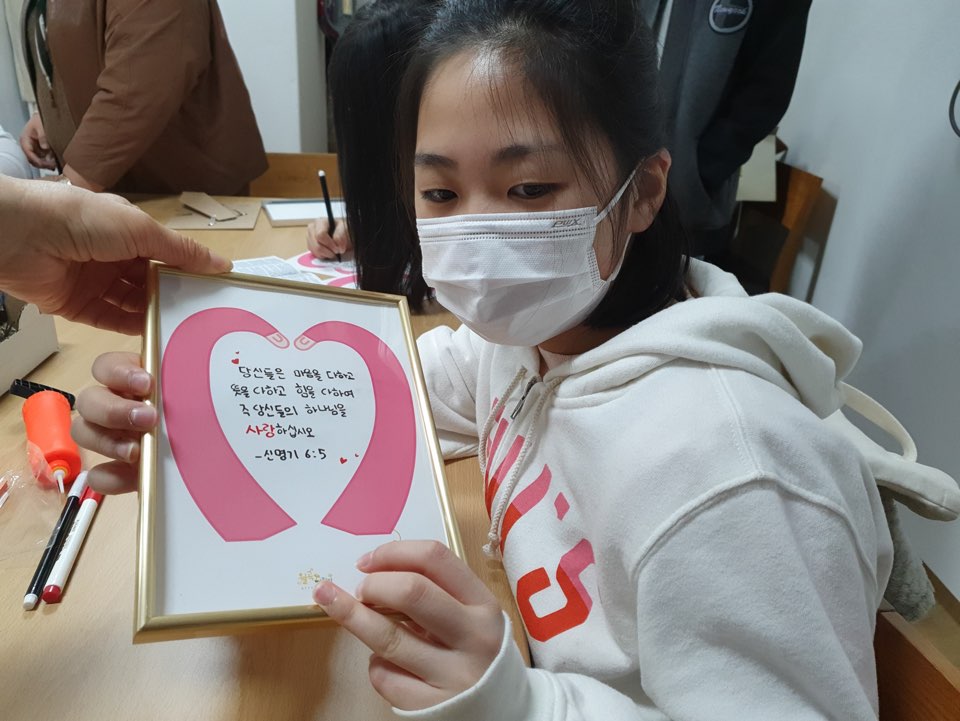 당신들은 마음을 다하고
뜻을 다하고 힘을 다하여
즉 당신들의 하나님을
사랑하십시오
-신명기 6:5